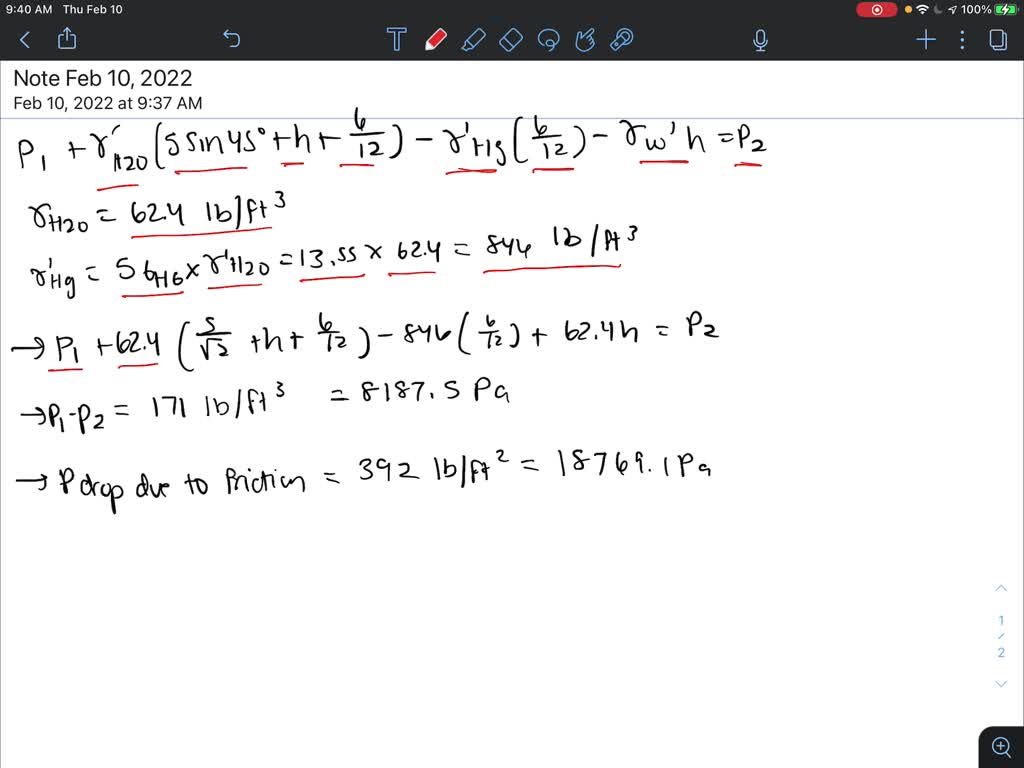 9:40 AM Thu Feb 10 100%
Note Feb 10, 2022
Feb 10, 2022 at 9:37 AM
P₁ + γ'H20 (5 sin 45° + h + 6/12) - γ'Hg (6/12) - γw' h = P₂
γH20 = 62.4 lb/ft³
γ'Hg = SGHG × γ'H20 = 13.55 × 62.4 = 846 lb/ft³
→ P₁ + 62.4 (5/√2 + h + 6/12) - 846 (6/12) + 62.4h = P₂
→ P₁-P₂ = 171 lb/ft³ = 8187.5 Pa
→ P drop due to friction = 392 lb/ft² = 18769.1 Pa
1
/
2